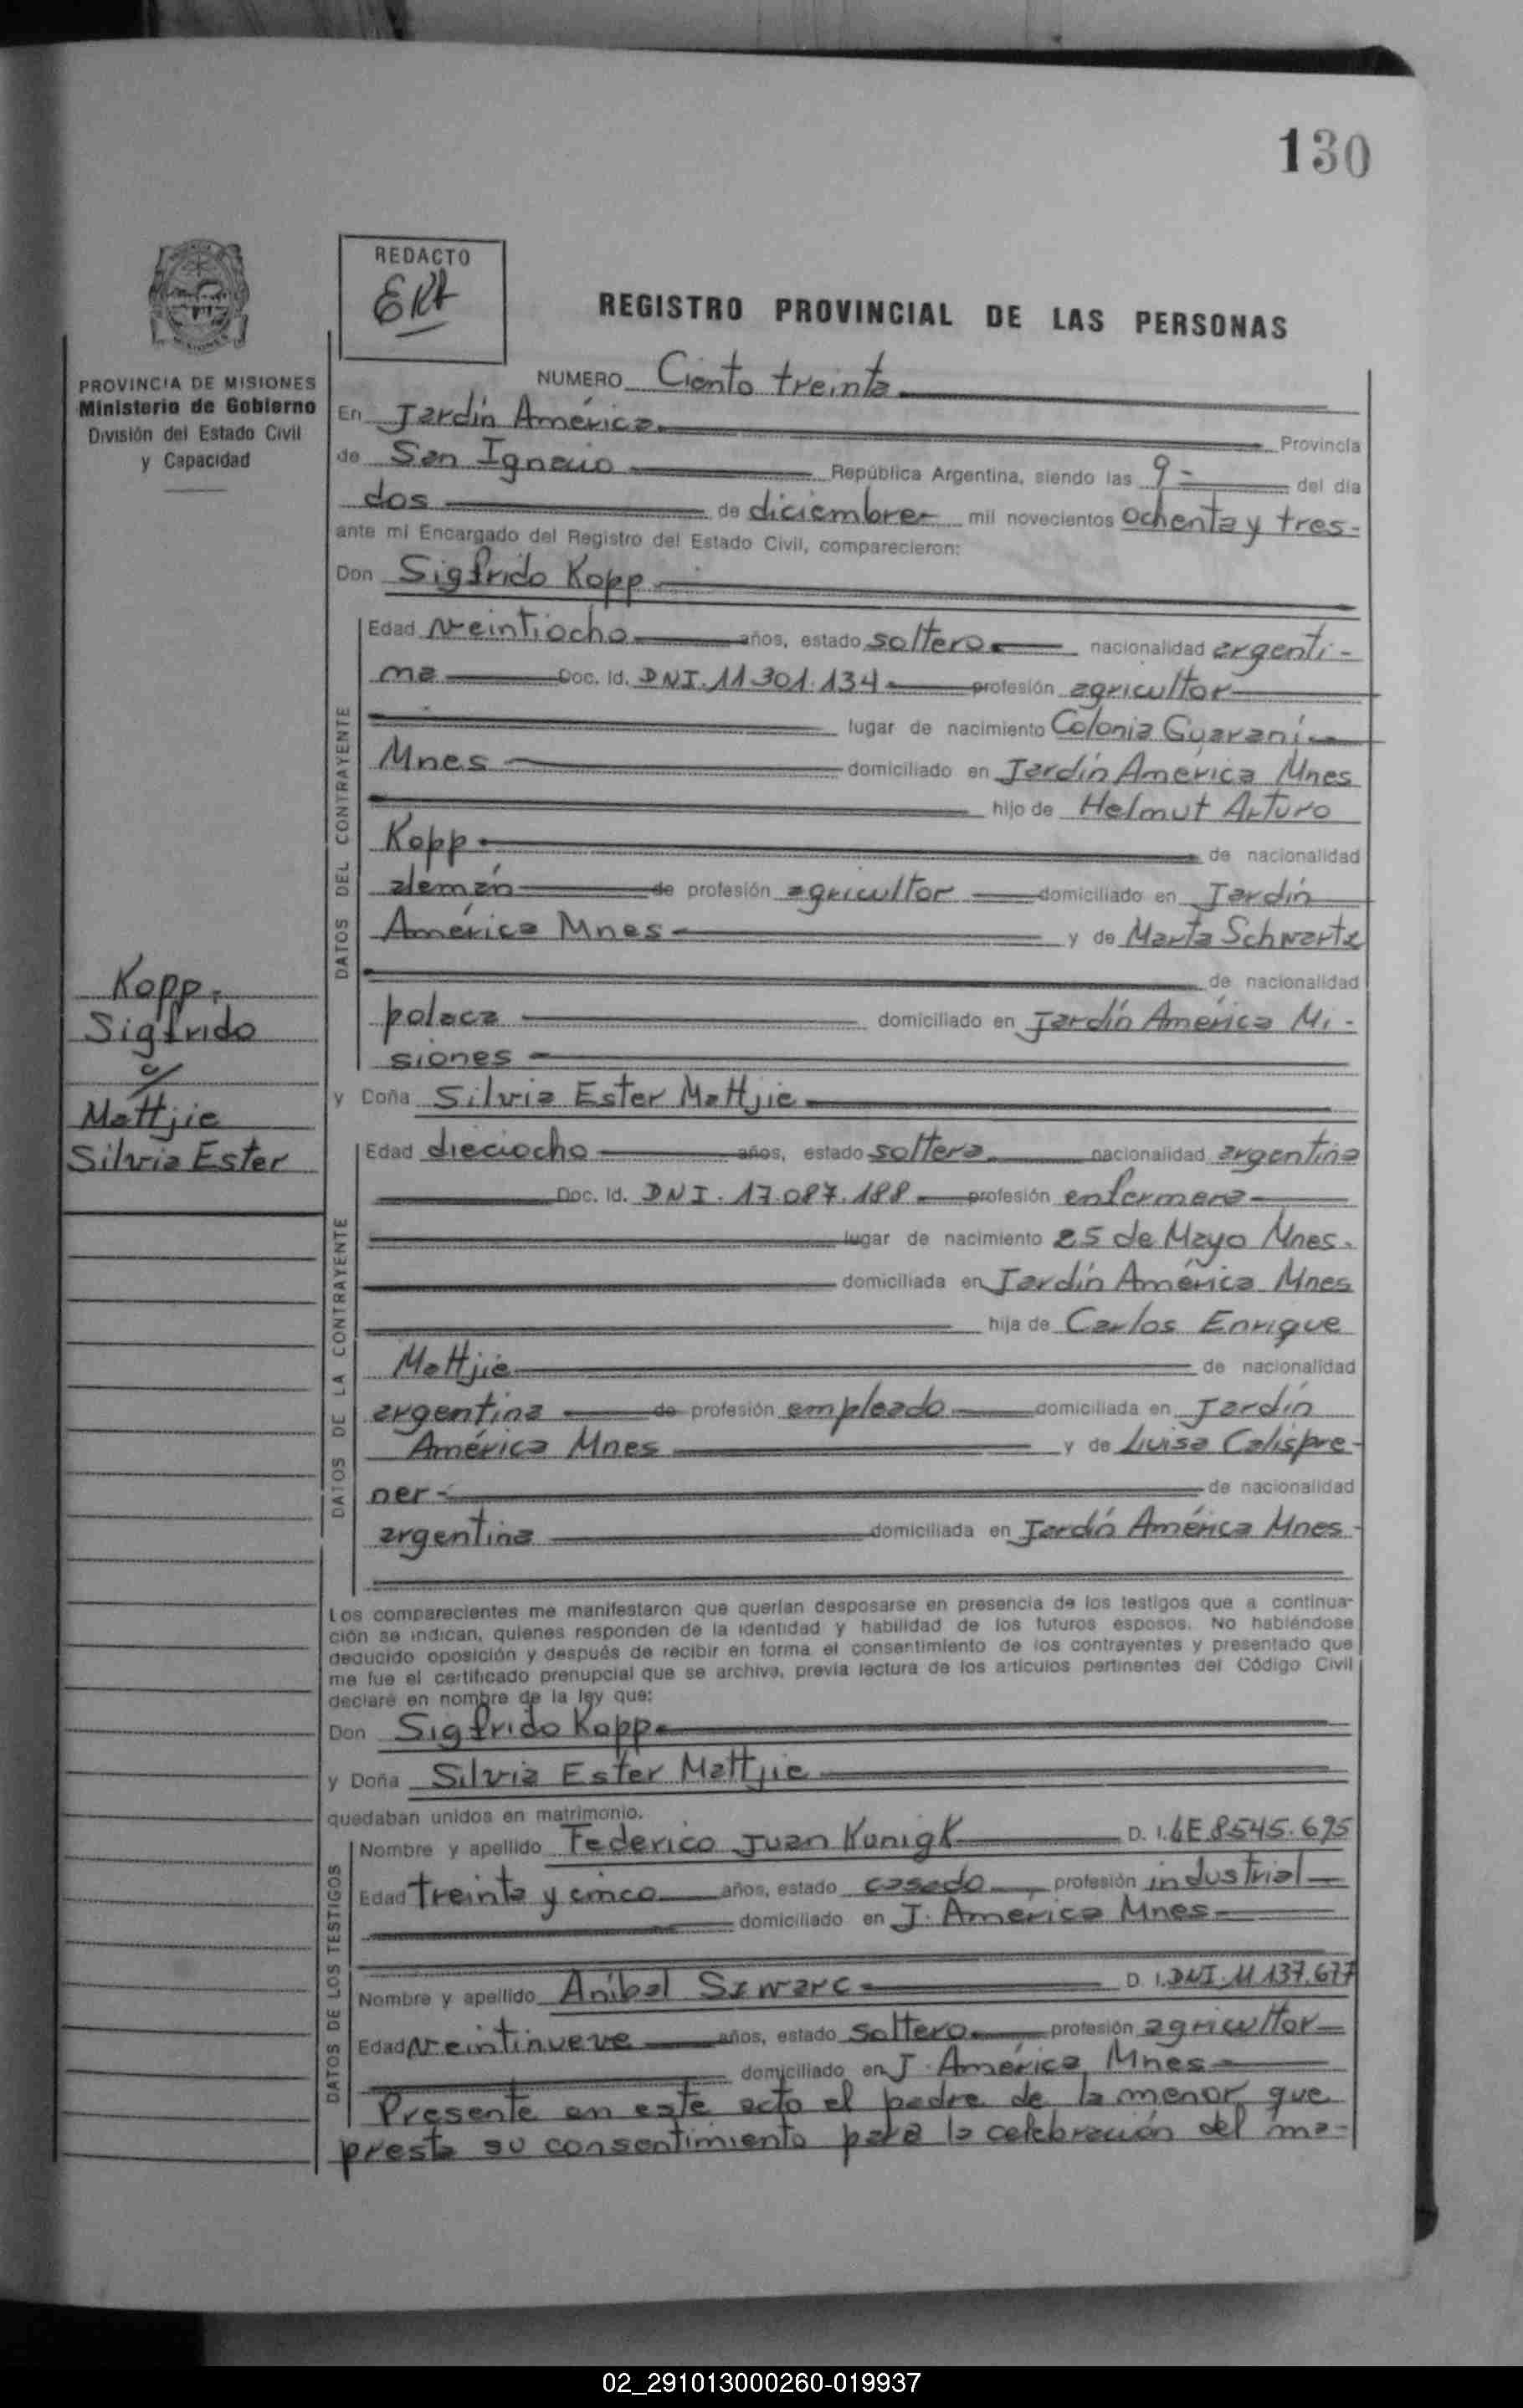 130
REDACTO
REGISTRO PROVINCIAL DE LAS PERSONAS
PROVINCIA DE MISIONES
Ministerio de Gobierno
División del Estado Civil
y Capacidad
NUMERO Ciento treinta
En Jardín América Provincia
de San Ignacio República Argentina, siendo las 9 - del día
dos de diciembre mil novecientos ochenta y tres-
ante mi Encargado del Registro del Estado Civil, comparecieron:
Don Sigfrido Kopp
DATOS DEL CONTRAYENTE
Edad veintiocho años, estado soltero nacionalidad argenti-
na Doc. Id. DNI. 11.301.134 profesión agricultor
lugar de nacimiento Colonia Guaraní
Mnes domiciliado en Jardín América Mnes
hijo de Helmut Arturo
Kopp de nacionalidad
alemán de profesión agricultor domiciliado en Jardín
América Mnes y de Marta Schwartz
de nacionalidad
polaca domiciliado en Jardín América Mi-
siones
Kopp,
Sigfrido
c/
Mattjie
Silvia Ester
y Doña Silvia Ester Mattjie
DATOS DE LA CONTRAYENTE
Edad dieciocho años, estado soltera nacionalidad argentina
Doc. Id. DNI. 17.087.188 profesión enfermera
lugar de nacimiento 25 de Mayo Mnes.
domiciliada en Jardín América Mnes
hija de Carlos Enrique
Mattjie de nacionalidad
argentina de profesión empleado domiciliada en Jardín
América Mnes y de Luisa Calispre-
ner- de nacionalidad
argentina domiciliada en Jardín América Mnes
Los comparecientes me manifestaron que querían desposarse en presencia de los testigos que a continua-
ción se indican, quienes responden de la identidad y habilidad de los futuros esposos. No habiéndose
deducido oposición y después de recibir en forma el consentimiento de los contrayentes y presentado que
me fue el certificado prenupcial que se archiva, previa lectura de los artículos pertinentes del Código Civil
declaré en nombre de la ley que:
Don Sigfrido Kopp
y Doña Silvia Ester Mattjie
quedaban unidos en matrimonio.
DATOS DE LOS TESTIGOS
Nombre y apellido Federico Juan Kunigk D. I. LE 8545.695
Edad treinta y cinco años, estado casado, profesión industrial
domiciliado en J. America Mnes
Nombre y apellido Anibal Szwarc D. I. DNI. 11.137.677
Edad veintinueve años, estado soltero profesión agricultor
domiciliado en J. América Mnes
Presente en este acto el padre de la menor que
presta su consentimiento para la celebración del ma-
02_291013000260-019937